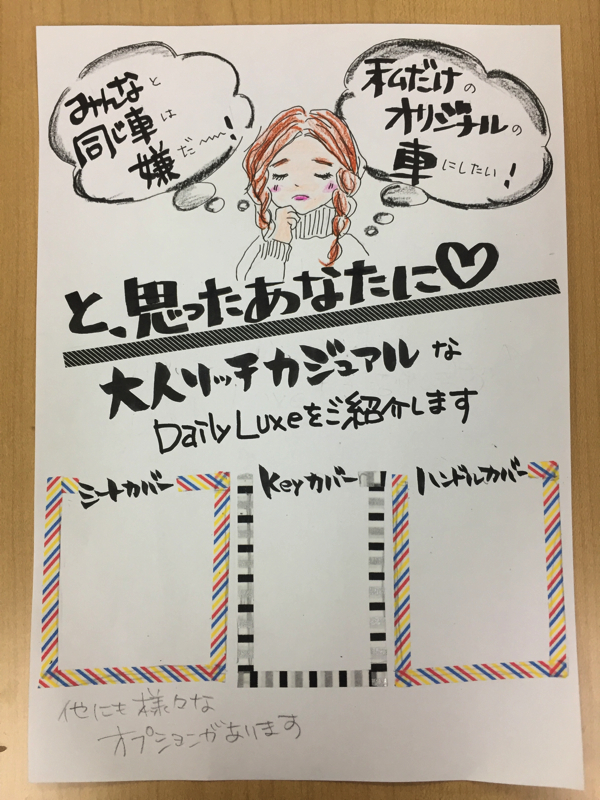 みんなと
同じ車は
嫌だ〜〜!
私だけの
オリジナルの
車にしたい!
と、思ったあなたに♡
大人リッチカジュアルな
Daily Luxeをご紹介します
シートカバー
Keyカバー
ハンドルカバー
他にも様々な
オプションがあります